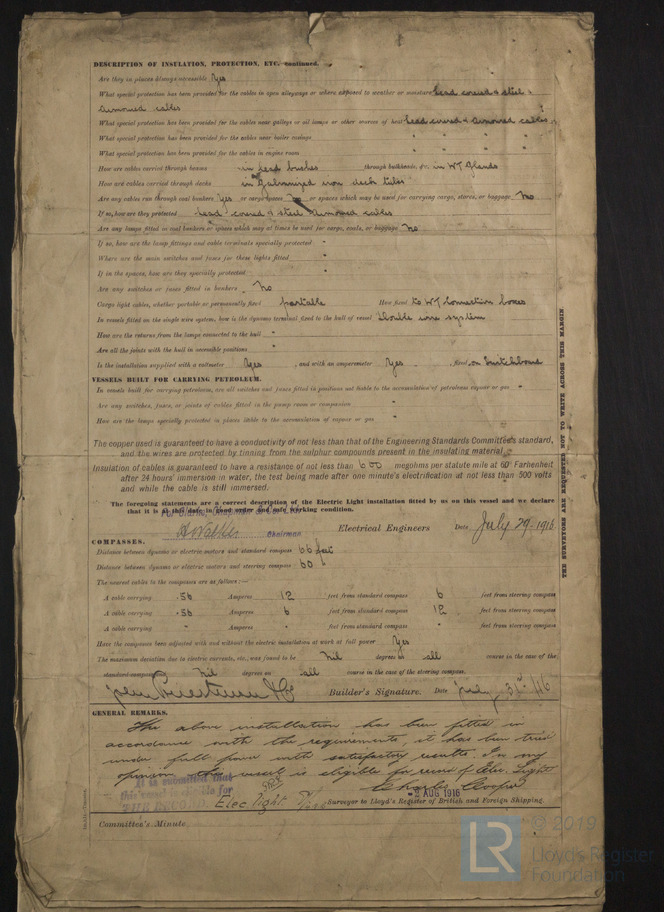 DESCRIPTION OF INSULATION, PROTECTION, ETC. continued.
Are they in places always accessible Yes
What special protection has been provided for the cables in open alleyways or where exposed to weather or moisture lead covered & steel
armoured cables
What special protection has been provided for the cables near galleys or oil lamps or other sources of heat lead covered & armoured cables
What special protection has been provided for the cables near boiler casings " " " "
What special protection has been provided for the cables in engine room " " " "
How are cables carried through beams in lead bushes through bulkheads, &c. in WT Glands
How are cables carried through decks in Galvanized iron deck tubes
Are any cables run through coal bunkers Yes or cargo spaces no or spaces which may be used for carrying cargo, stores, or baggage no
If so, how are they protected lead covered & steel armoured cables
Are any lamps fitted in coal bunkers or spaces which may at times be used for cargo, coals, or baggage no
If so, how are the lamp fittings and cable terminals specially protected "
Where are the main switches and fuses for these lights fitted "
If in the spaces, how are they specially protected "
Are any switches or fuses fitted in bunkers no
Cargo light cables, whether portable or permanently fixed portable How fixed to WT connection boxes
In vessels fitted on the single wire system, how is the dynamo terminal fixed to the hull of vessel Double wire system
How are the returns from the lamps connected to the hull "
Are all the joints with the hull in accessible positions "
Is the installation supplied with a voltmeter Yes , and with an amperemeter Yes , fixed on switchboard
VESSELS BUILT FOR CARRYING PETROLEUM.
In vessels built for carrying petroleum, are all switches and fuses fitted in positions not liable to the accumulation of petroleum vapour or gas "
Are any switches, fuses, or joints of cables fitted in the pump room or companion "
How are the lamps specially protected in places liable to the accumulation of vapour or gas "
The copper used is guaranteed to have a conductivity of not less than that of the Engineering Standards Committee's standard,
and the wires are protected by tinning from the sulphur compounds present in the insulating material.
Insulation of cables is guaranteed to have a resistance of not less than 600 megohms per statute mile at 60° Farhenheit
after 24 hours' immersion in water, the test being made after one minute's electrification at not less than 500 volts
and while the cable is still immersed.
The foregoing statements are a correct description of the Electric Light installation fitted by us on this vessel and we declare
that it is at this date in good order and safe working condition.
Chairman Electrical Engineers Date July 29. 1916
COMPASSES.
Distance between dynamo or electric motors and standard compass 66 feet
Distance between dynamo or electric motors and steering compass 60 "
The nearest cables to the compasses are as follows:—
A cable carrying .56 Amperes 12 feet from standard compass 6 feet from steering compass
A cable carrying .56 Amperes 6 feet from standard compass 12 feet from steering compass
A cable carrying " Amperes " feet from standard compass " feet from steering compass
Have the compasses been adjusted with and without the electric installation at work at full power Yes
The maximum deviation due to electric currents, etc., was found to be nil degrees on all course in the case of the
standard compass nil degrees on all course in the case of the steering compass.
Builder's Signature. Date July 31st 1916
GENERAL REMARKS.
The above installation has been fitted in
accordance with the requirements, it has been tried
under full power with satisfactory results. In my
opinion the vessel is eligible for record of Elec. Light.
It is submitted that
this vessel is eligible for
THE RECORD. Elec light
Charles Cooper
2 AUG 1916
Surveyor to Lloyd's Register of British and Foreign Shipping.
Committee's Minute
THE SURVEYORS ARE REQUESTED NOT TO WRITE ACROSS THIS MARGIN
LR
© 2019
Lloyd's Register
Foundation